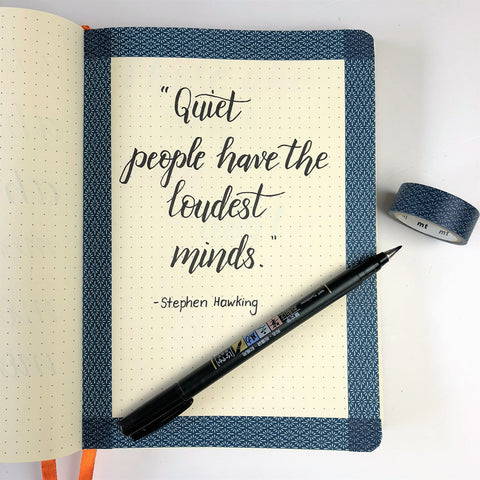 "Quiet
people have the
loudest
minds."
-Stephen Hawking
mt
mt